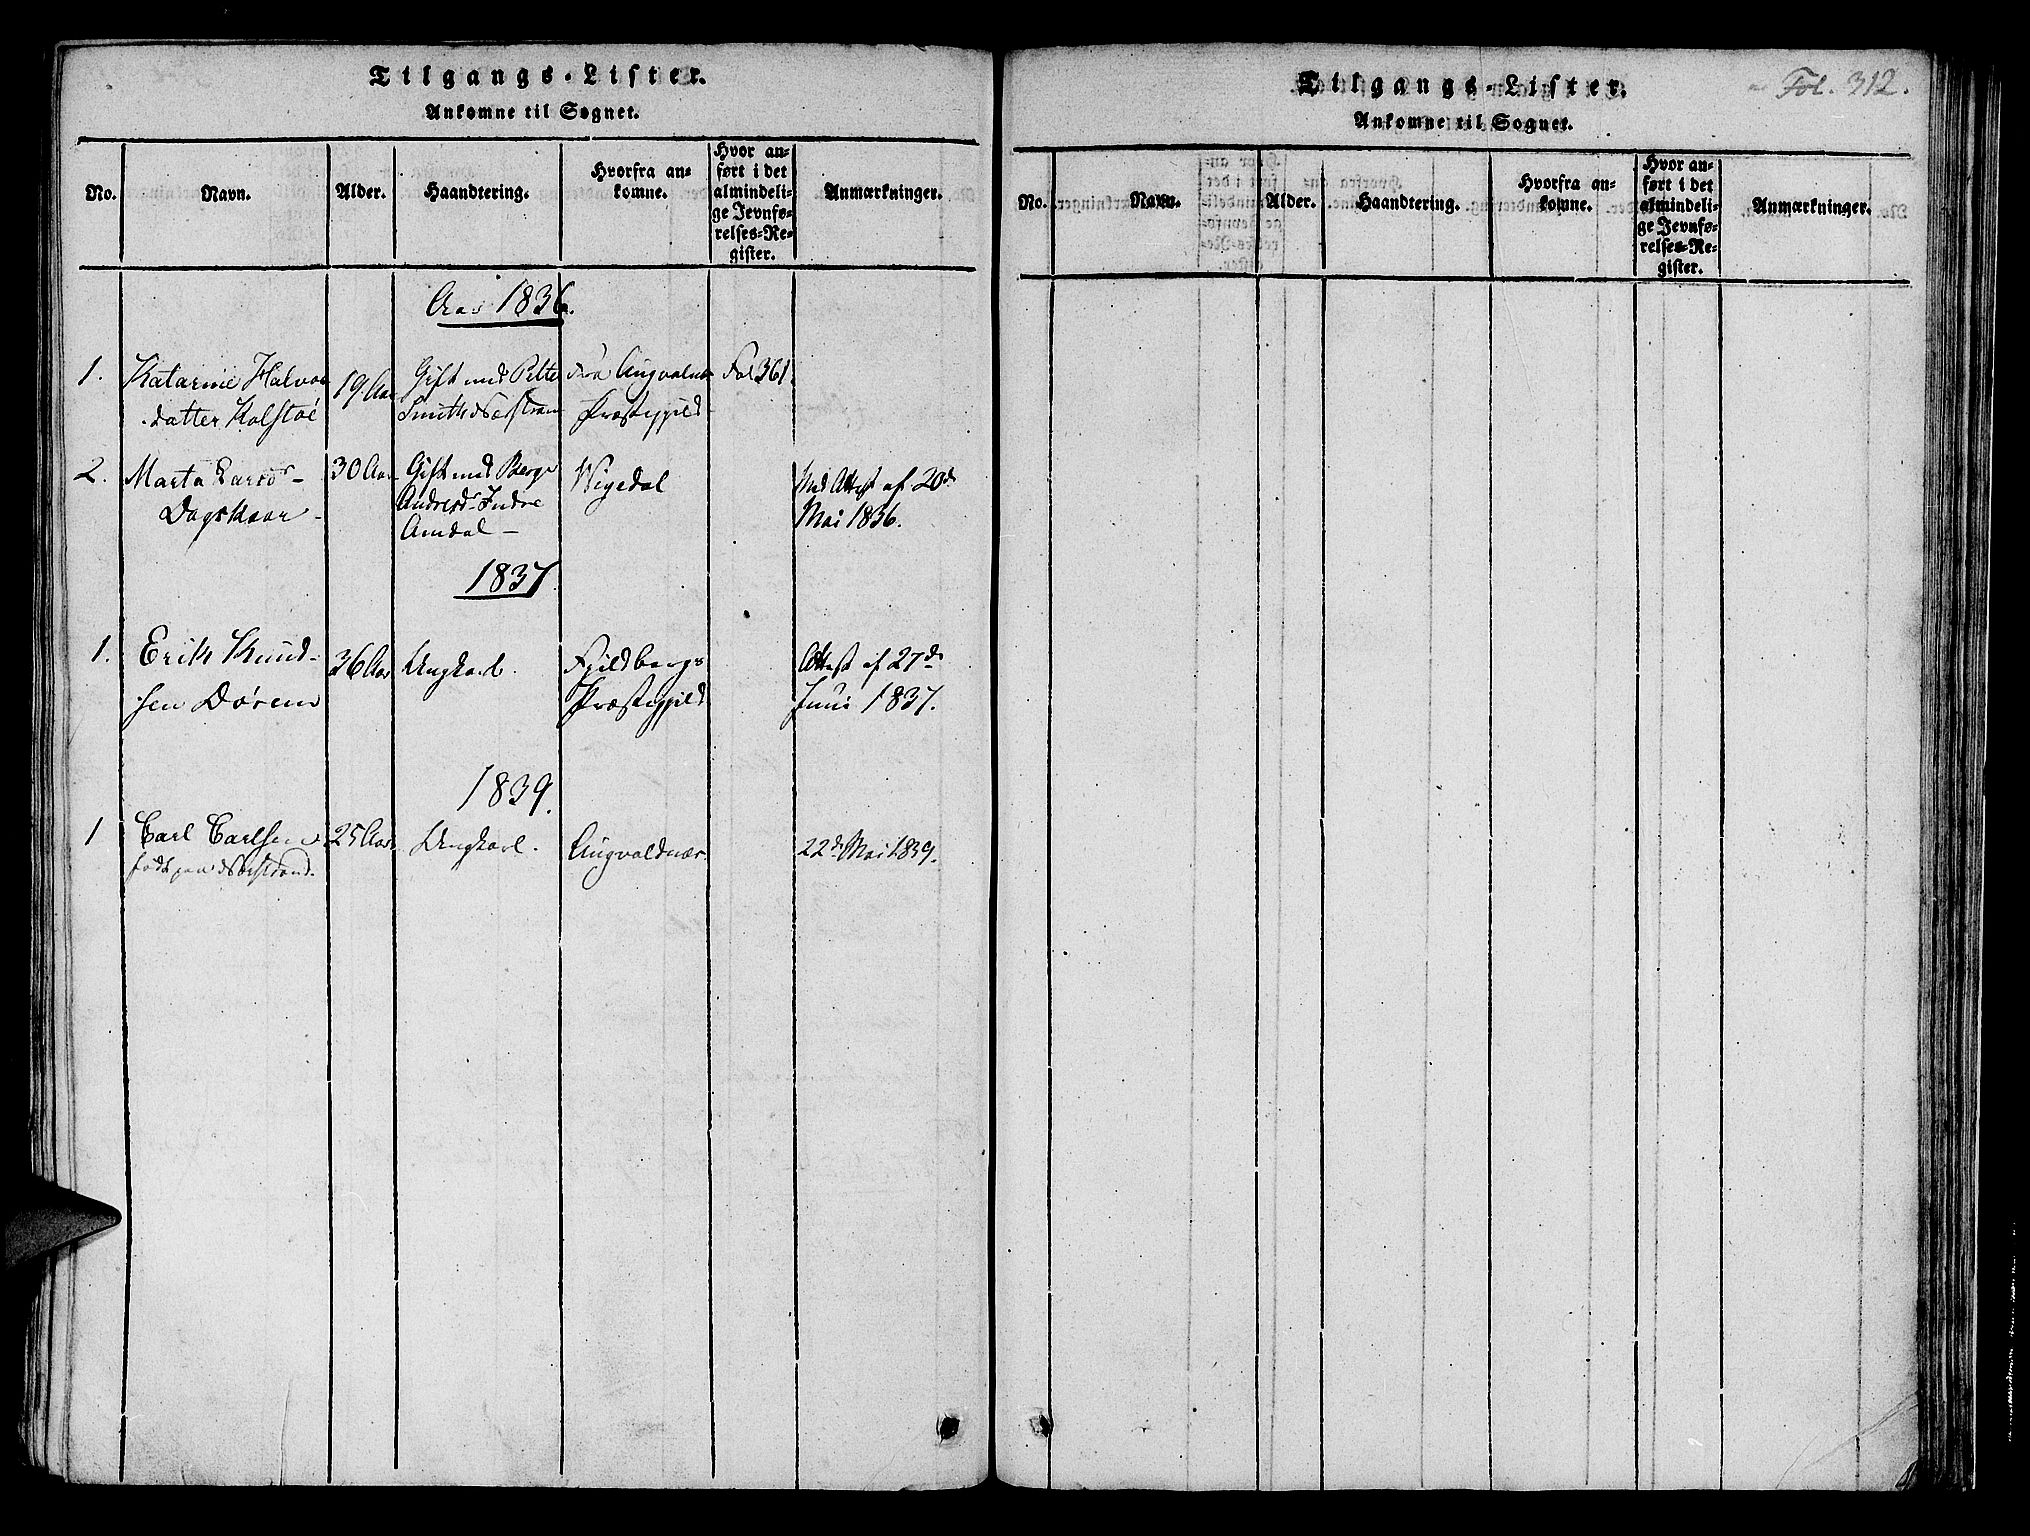 Tilgangs-Lister.
Ankomne til Sognet.
No. Navn. Alder. Haandtering. Hvorfra an-
komne. Hvor an-
ført i det
almindeli-
ge Jevnfø-
relses-Re-
gister. Anmærkninger.
Aar 1836.
1. Katarine Halvors
datter Kolstøe 19 Aar Gift med Peter
Smith Fra Augvalds
Præstegjeld Fol 361.
2. Marta Larsd
Dagskaar 30 Aar Gift med Berge
Andresd Indre
Amdal Wigedal Med Attest af 20de
Mai 1836.
1837.
1. Erik Knud-
sen 36 Aar Ungkarl. Fjeldbergs
Præstegjeld Attest af 27de
Juni 1837.
1839.
1 Carl Carlsen
født paa 25 Aar Ungkarl. Augvaldnæs. 22de Mai 1839.
Tilgangs-Lister.
Ankomne til Sognet.
Fol. 312.
No. Navn. Alder. Haandtering. Hvorfra an-
komne. Hvor an-
ført i det
almindeli-
ge Jevnfø-
relses-Re-
gister. Anmærkninger.